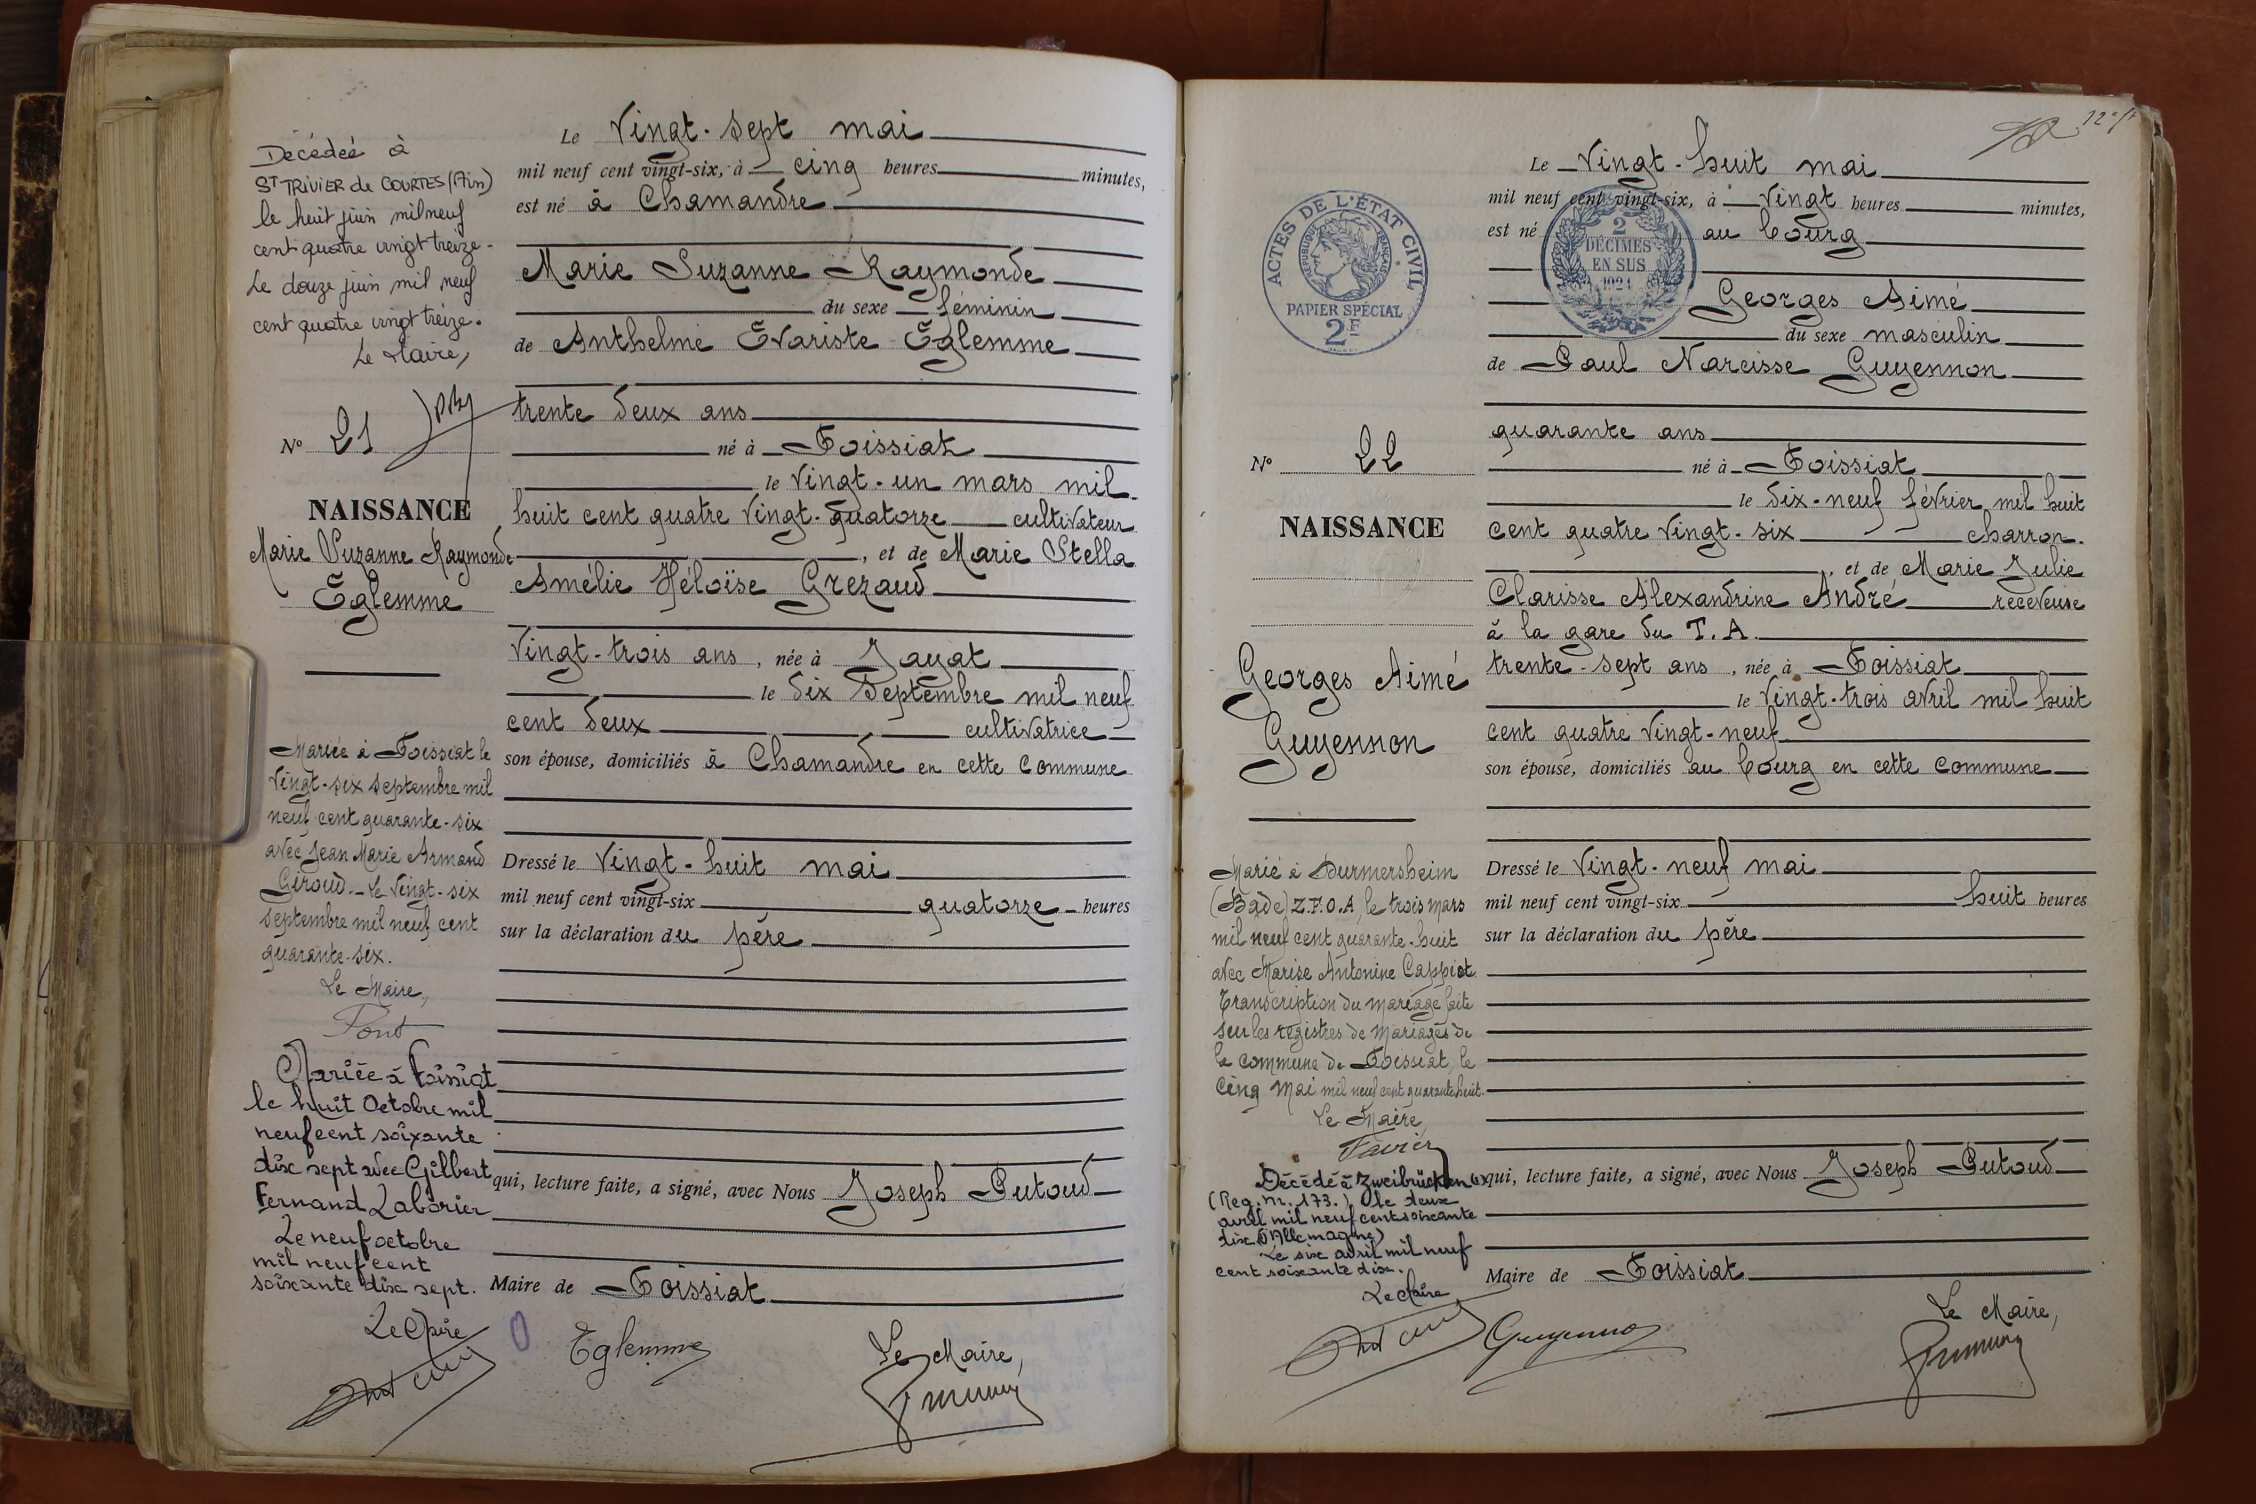 Décédée à
ST TRIVIER de COURTES (Ain)
le huit juin mil neuf
cent quatre vingt treize.
Le douze juin mil neuf
cent quatre vingt treize.
Le Maire,
No 21
NAISSANCE
Marie Suzanne Raymonde
Eglemme
Mariée à Foissiat le
vingt-six septembre mil
neuf cent quarante-six
avec Jean Marie Armand
Giroud. - Le vingt-six
septembre mil neuf cent
quarante-six.
Le Maire,
Pont
Mariée à Foissiat
le huit Octobre mil
neuf cent soixante
dix sept avec Gilbert
Fernand Laborier
Le neuf octobre
mil neuf cent
soixante dix sept.
Le Maire
Le Vingt-sept mai
mil neuf cent vingt-six, à cinq heures minutes,
est né à Chamandre
Marie Suzanne Raymonde
du sexe féminin
de Anthelme Evariste Eglemme
trente deux ans
né à Foissiat
le vingt-un mars mil
huit cent quatre vingt-quatorze cultivateur
, et de Marie Stella
Amélie Héloïse Grezaud
vingt-trois ans, née à Jayat
le dix septembre mil neuf
cent deux cultivatrice
son épouse, domiciliés à Chamandre en cette commune
Dressé le vingt-huit mai
mil neuf cent vingt-six quatorze heures
sur la déclaration du père
qui, lecture faite, a signé, avec Nous Joseph Putoud
Maire de Foissiat
Eglemme
Le Maire,
ACTES DE L'ÉTAT CIVIL
RÉPUBLIQUE FRANÇAISE
PAPIER SPÉCIAL
2F
2
DÉCIMES
EN SUS
1921
No 22
NAISSANCE
Georges Aimé
Guyennon
Marié à Durmersheim
(Bade) Z.F.O.A, le trois mars
mil neuf cent quarante-huit
avec Marise Antonine Cappiot
Transcription du mariage faite
sur les registres de mariages de
la commune de Foissiat, le
cinq mai mil neuf cent quarante huit.
Le Maire,
Favier
Décédé à Zweibrücken
(Reg. Nr. 173.) le deux
avril mil neuf cent soixante
dix (Allemagne)
Le six avril mil neuf
cent soixante dix.
Le Maire
Le Vingt-huit mai
mil neuf cent vingt-six, à vingt heures minutes,
est né au bourg
Georges Aimé
du sexe masculin
de Paul Narcisse Guyennon
quarante ans
né à Foissiat
le dix-neuf février mil huit
cent quatre vingt-six charron.
, et de Marie Julie
Clarisse Alexandrine André receveuse
à la gare du T.A.
trente-sept ans, née à Foissiat
le vingt-trois avril mil huit
cent quatre vingt-neuf
son épouse, domiciliés au bourg en cette commune
Dressé le vingt-neuf mai
mil neuf cent vingt-six huit heures
sur la déclaration du père
qui, lecture faite, a signé, avec Nous Joseph Putoud
Maire de Foissiat
Guyennon
Le Maire,